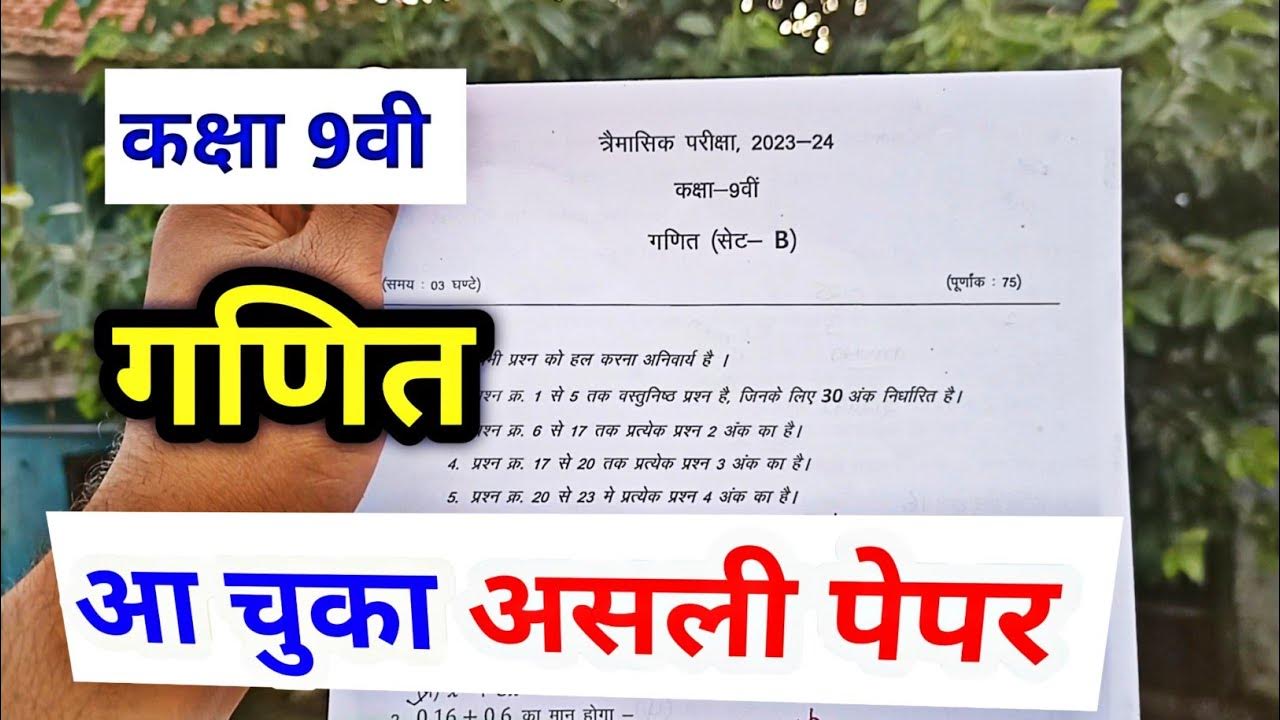 कक्षा 9वी
गणित
त्रैमासिक परीक्षा, 2023–24
कक्षा–9वीं
गणित (सेट– B)
(समय : 03 घण्टे)
(पूर्णांक : 75)
प्रश्न को हल करना अनिवार्य है ।
क्र. 1 से 5 तक वस्तुनिष्ठ प्रश्न है, जिनके लिए 30 अंक निर्धारित है।
क्र. 6 से 17 तक प्रत्येक प्रश्न 2 अंक का है।
4. प्रश्न क्र. 17 से 20 तक प्रत्येक प्रश्न 3 अंक का है।
5. प्रश्न क्र. 20 से 23 मे प्रत्येक प्रश्न 4 अंक का है।
आ चुका असली पेपर
0.16 + 0.6 का मान होगा –